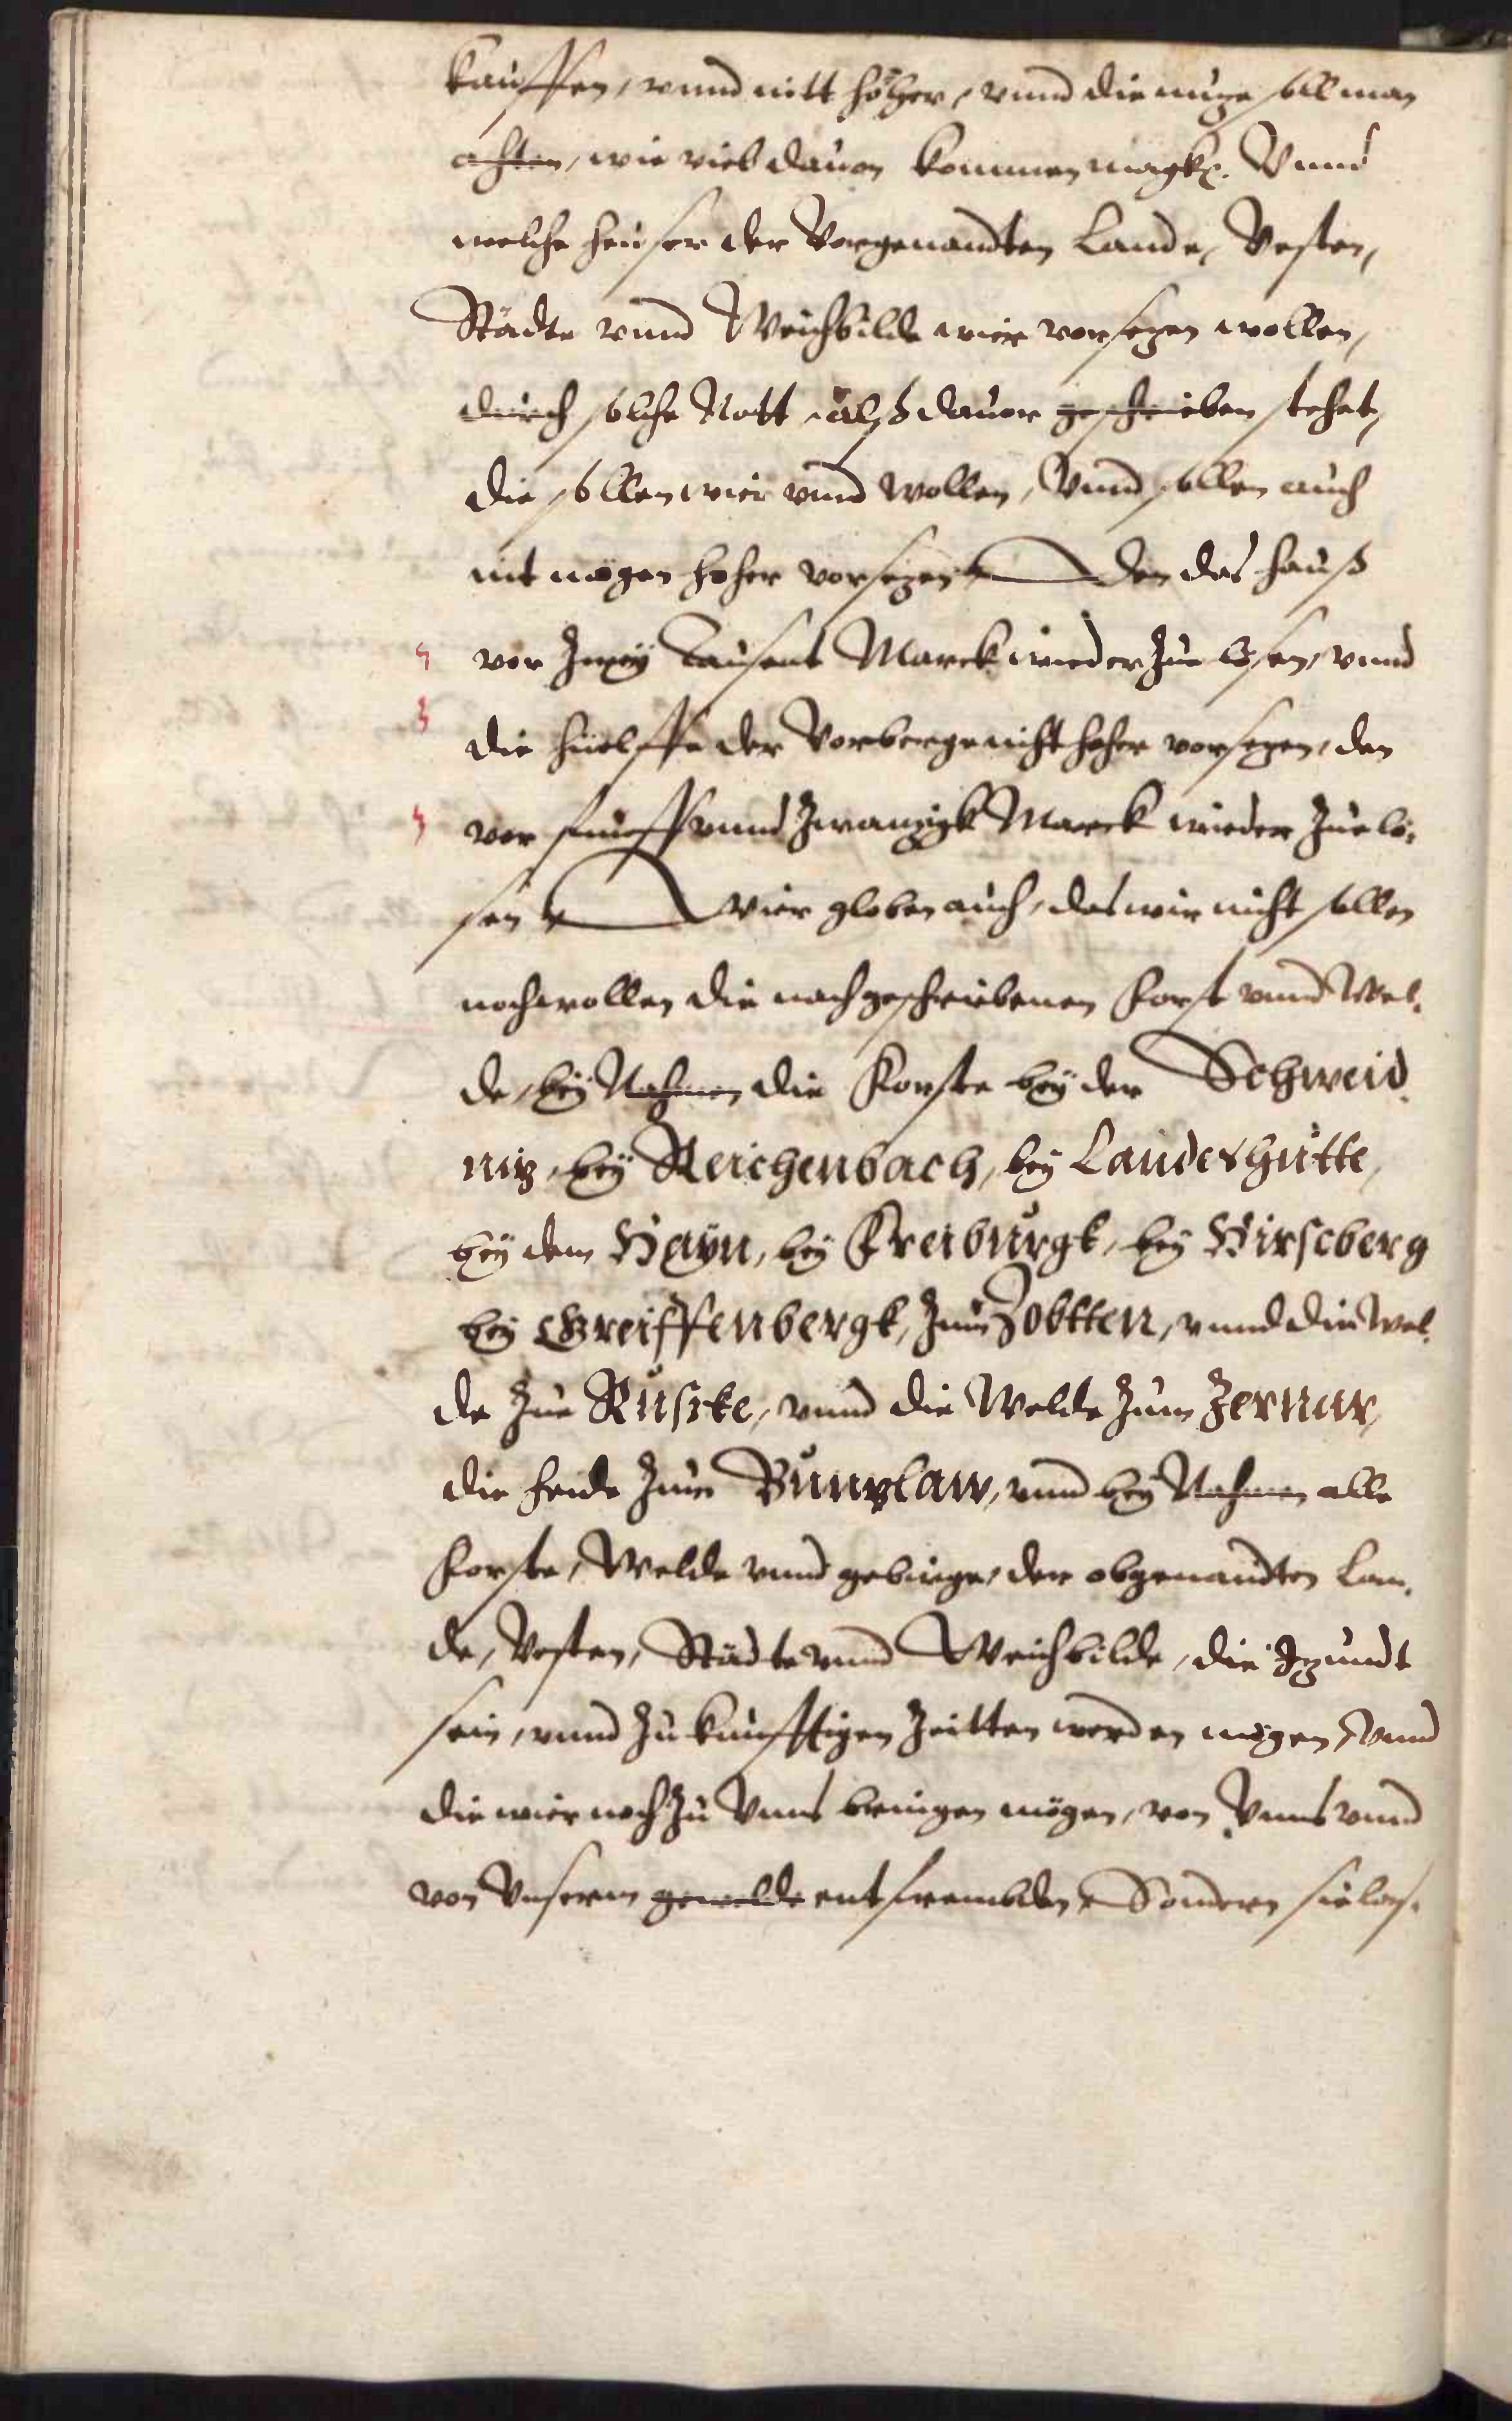 kauffen, vnnd nitt höher, vnnd die nuze soll man
achten, wie viel dauon kommen magk. Vnnd
welche heuser der Vorgenandten Lande, Vesten,
Städte vnnd Weichbilde wier vorsezen wollen,
durch solche Nott, alß dauor geschrieben stehet,
die sollen wier vnnd wollen, Vnnd sollen auch
nit mögen hoher vorsezen den das hauß
vor Zwey Tausent Marck wieder Zue lösen, vnnd
die huelffe der Vorberge nicht hoher vorsezen, den
vor funff vnnd Zwanzigk Marck wieder Zue lö-
sen Wier globen auch, das wir nicht sollen
noch wollen die nachgeschriebenen Forst vnnd Wel-
de, bey Nahmen die Forste bey der Schweid-
niz, bey Reichenbach, bey Landeshutte,
bey dem Hayn, bey Freiburgk, bey Hirscberg
bey Greiffenbergk, Zum Zobtten, vnnd die Wel-
de Zue Ruscke, vnnd die Welde Zum Zernur,
die heide Zum Bunzlaw, vnnd bey Nahmen alle
Forste, Welde vnnd gebirge, der obgenandten Lan-
de, Vesten, Städte vnnd Weichbilde, die Izundt
sein, vnnd Zukunfftigen Zeitten werden mögen, Vnnd
die wier noch Zu Vnns bringen mögen, von Vnns vnnd
von Vnserm gewelde entfrembden, Sondern sie las-